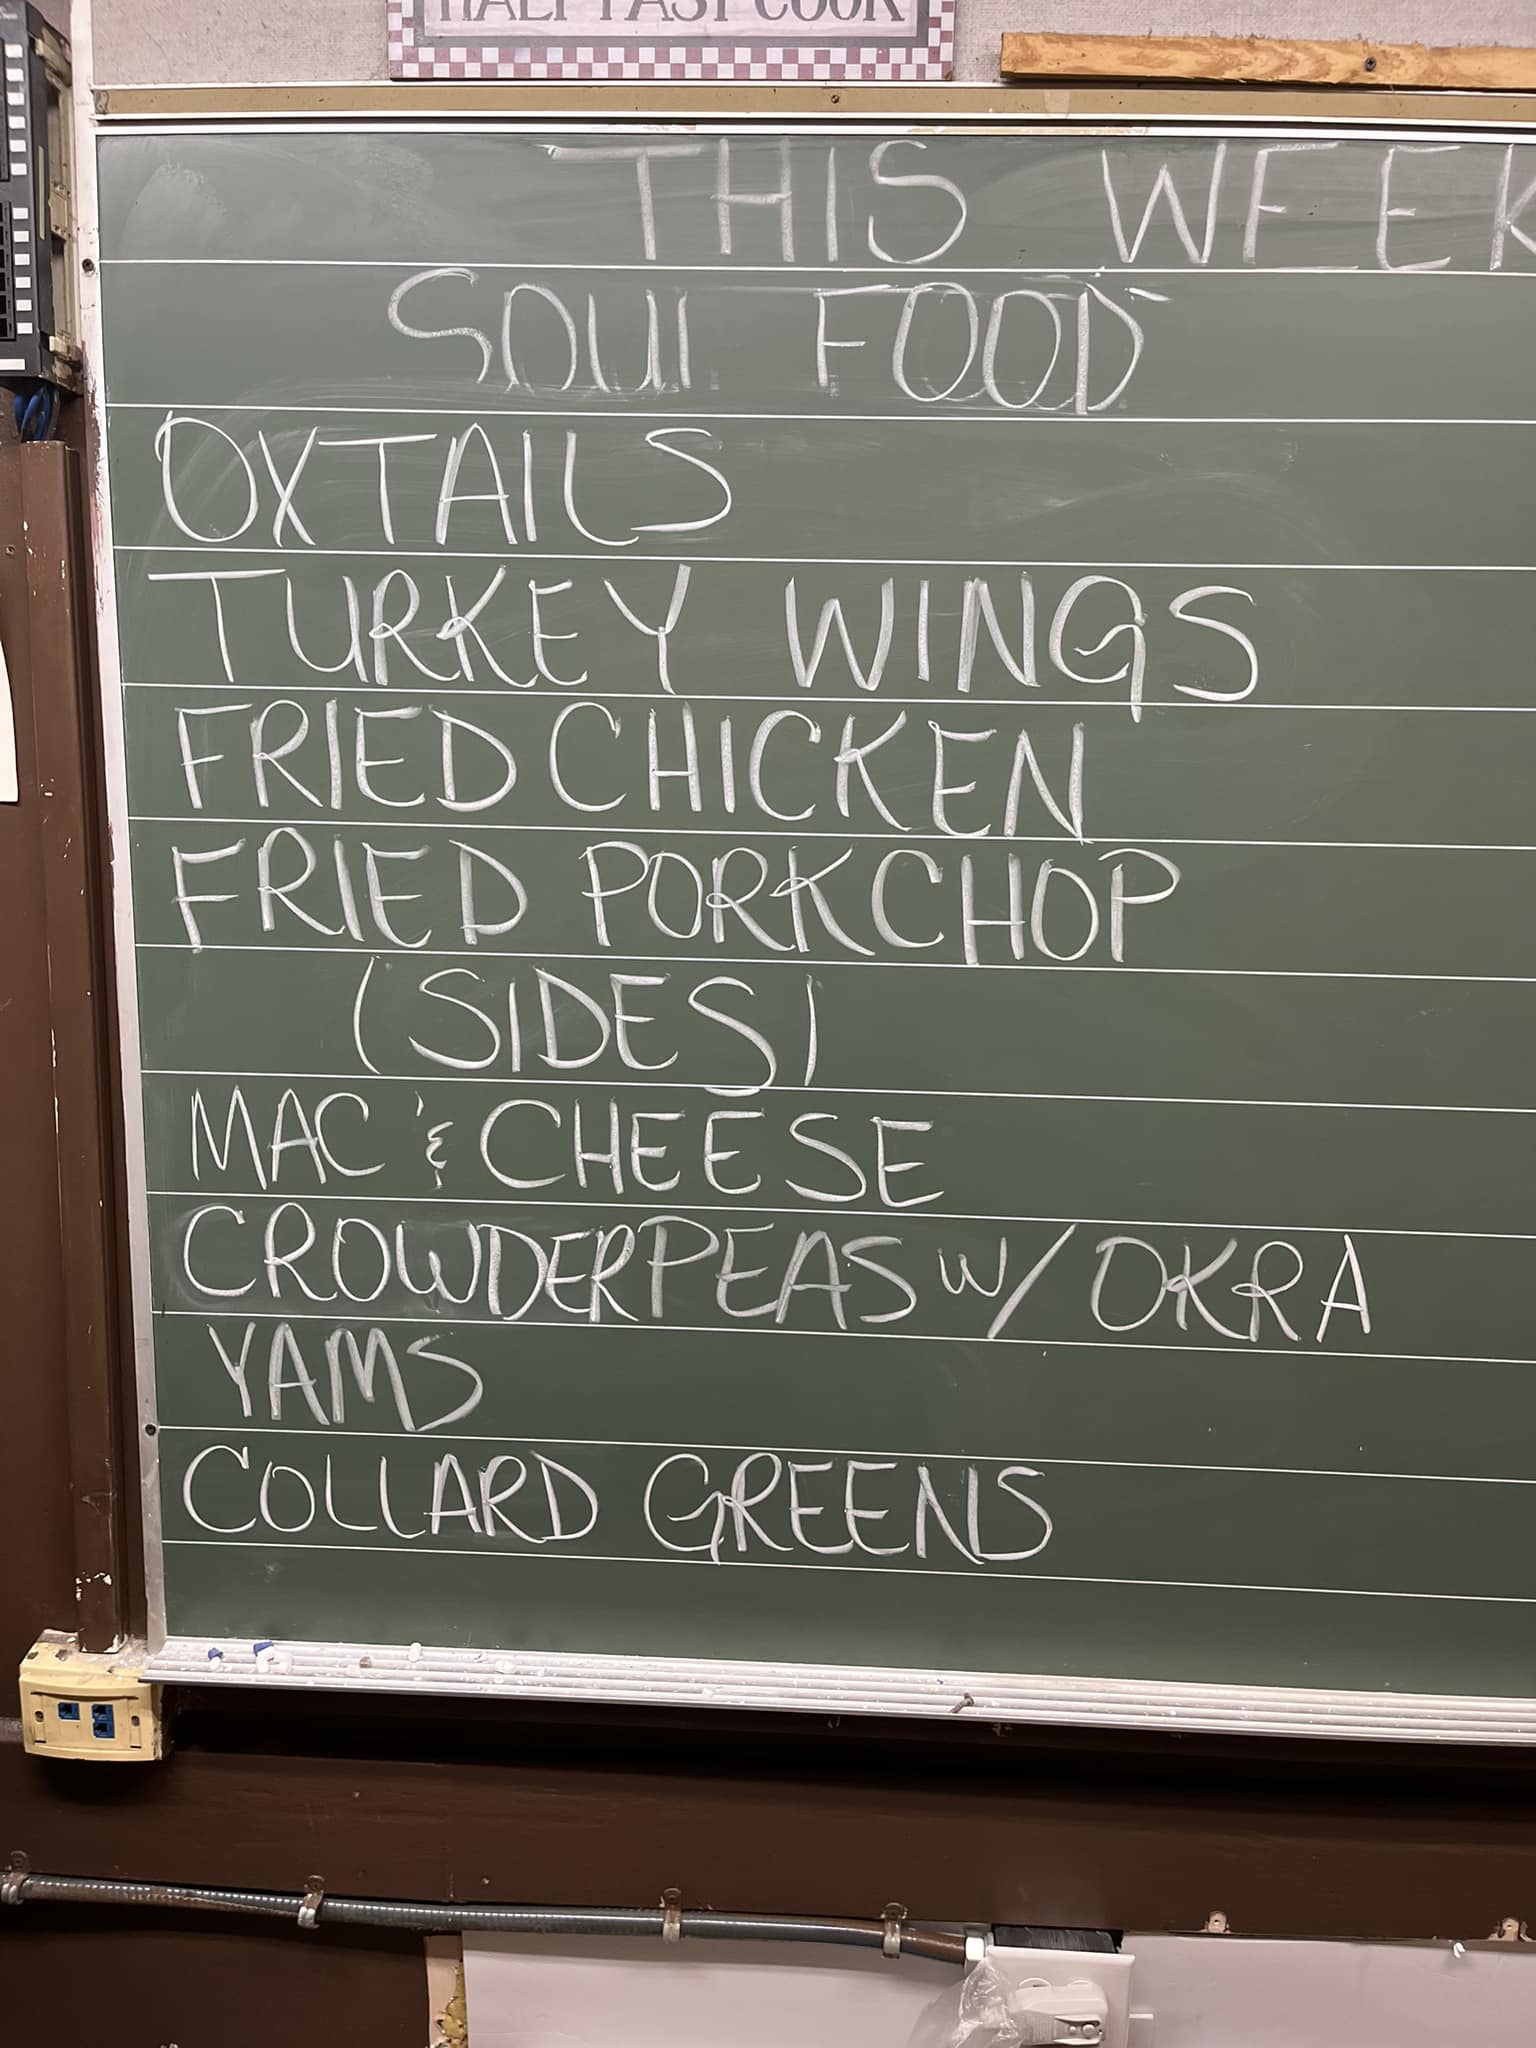 HALF PAST COOK
THIS WEEK
SOUL FOOD
OXTAILS
TURKEY WINGS
FRIED CHICKEN
FRIED PORKCHOP
(SIDES)
MAC & CHEESE
CROWDERPEAS W/ OKRA
YAMS
COLLARD GREENS